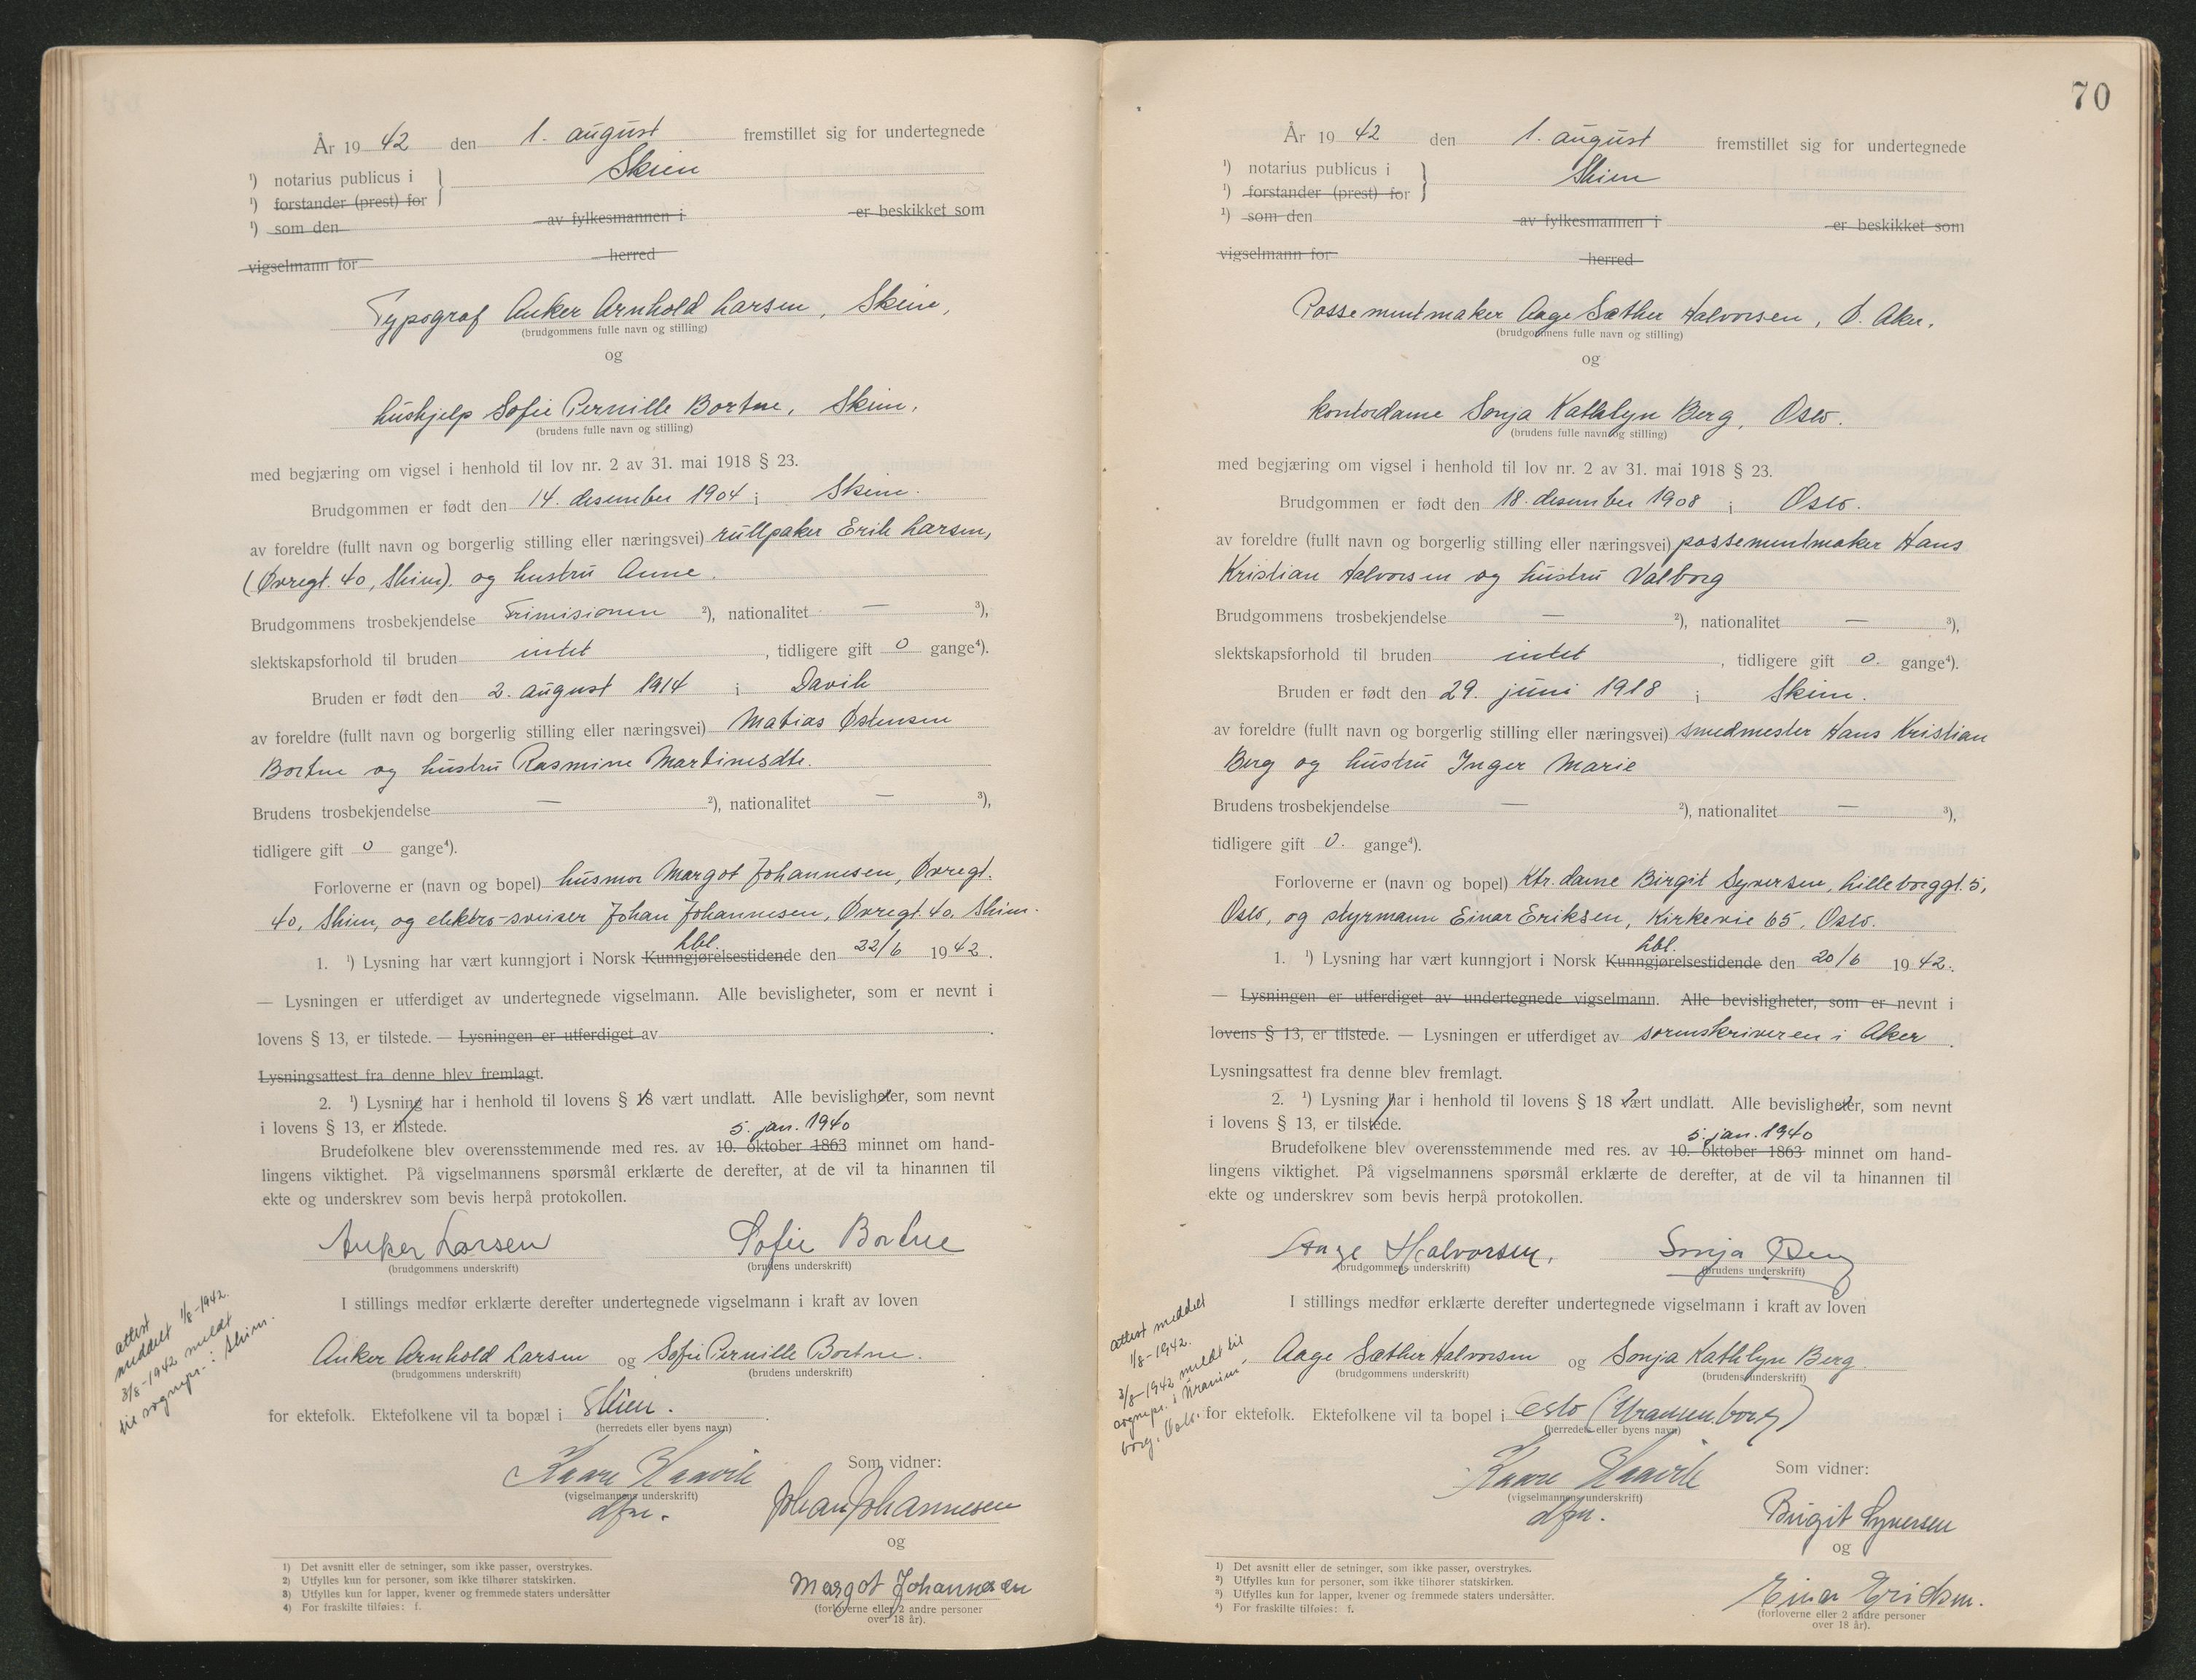 År 19 42 den 1. august fremstillet sig for undertegnede
¹) notarius publicus i } Skien
¹) forstander (prest) for
¹) som den av fylkesmannen i er beskikket som
vigselmann for herred
Typograf Anker Arnhold Larsen, Skien,
(brudgommens fulle navn og stilling)
og
hushjelp Sofie Pernille Bortne, Skien,
(brudens fulle navn og stilling)
med begjæring om vigsel i henhold til lov nr. 2 av 31. mai 1918 § 23.
Brudgommen er født den 14. desember 1904 i Skien.
av foreldre (fullt navn og borgerlig stilling eller næringsvei) rullpaker Erik Larsen,
(Øvregt. 40, Skien). og hustru Anne.
Brudgommens trosbekjendelse Frimisjonen ²), nationalitet — ³),
slektskapsforhold til bruden intet , tidligere gift 0 gange⁴).
Bruden er født den 2. august 1914 i Davik
av foreldre (fullt navn og borgerlig stilling eller næringsvei) Matias Østensen
Bortne og hustru Rasmine Martinesdtr.
Brudens trosbekjendelse — ²), nationalitet — ³),
tidligere gift 0 gange⁴).
Forloverne er (navn og bopel) husmor Margot Johannesen, Øvregt.
40, Skien, og elektro-sveiser Johan Johannesen, Øvregt. 40, Skien.
lbl.
1. ¹) Lysning har vært kunngjort i Norsk Kunngjørelsestidende den 22/6 19 42.
— Lysningen er utferdiget av undertegnede vigselmann. Alle bevisligheter, som er nevnt i
lovens § 13, er tilstede. — Lysningen er utferdiget av .
Lysningsattest fra denne blev fremlagt.
2. ¹) Lysning har i henhold til lovens § 18 vært undlatt. Alle bevisligheter, som nevnt
i lovens § 13, er tilstede.
5. jan. 1940
Brudefolkene blev overensstemmende med res. av 10. oktober 1863 minnet om hand-
lingens viktighet. På vigselmannens spørsmål erklærte de derefter, at de vil ta hinannen til
ekte og underskrev som bevis herpå protokollen.
Anker Larsen Sofie Bortne
(brudgommens underskrift) (brudens underskrift)
I stillings medfør erklærte derefter undertegnede vigselmann i kraft av loven
Anker Arnhold Larsen og Sofie Pernille Bortne.
(brudgommens underskrift) (brudens underskrift)
for ektefolk. Ektefolkene vil ta bopæl i Skien.
(herredets eller byens navn)
attest
meddelt 1/8-1942.
3/8-1942 meldt
til sognepr. i Skien.
Kaare Haavik Som vidner:
(vigselmannens underskrift)
dfm. Johan Johannesen
og
Margot Johannesen
(forloverne eller 2 andre personer
over 18 år).
1) Det avsnitt eller de setninger, som ikke passer, overstrykes.
2) Utfylles kun for personer, som ikke tilhører statskirken.
3) Utfylles kun for lapper, kvener og fremmede staters undersåtter
4) For fraskilte tilføies: f.
70
År 19 42 den 1. august fremstillet sig for undertegnede
¹) notarius publicus i } Skien
¹) forstander (prest) for
¹) som den av fylkesmannen i er beskikket som
vigselmann for herred
Possementmaker Aage Sæther Halvorsen, Ø. Aker.
(brudgommens fulle navn og stilling)
og
kontordame Sonja Kathlyn Berg, Oslo.
(brudens fulle navn og stilling)
med begjæring om vigsel i henhold til lov nr. 2 av 31. mai 1918 § 23.
Brudgommen er født den 18. desember 1908 i Oslo.
av foreldre (fullt navn og borgerlig stilling eller næringsvei) possementmaker Hans
Kristian Halvorsen og hustru Valborg
Brudgommens trosbekjendelse — ²), nationalitet — ³),
slektskapsforhold til bruden intet , tidligere gift 0. gange⁴).
Bruden er født den 29. juni 1918 i Skien.
av foreldre (fullt navn og borgerlig stilling eller næringsvei) smedmester Hans Kristian
Berg og hustru Inger Marie
Brudens trosbekjendelse — ²), nationalitet — ³),
tidligere gift 0. gange⁴).
Forloverne er (navn og bopel) Ktr.dame Birgit Syversen, Lilleborggt. 5,
Oslo, og styrmann Einar Eriksen, Kirkevie 65, Oslo.
lbl.
1. ¹) Lysning har vært kunngjort i Norsk Kunngjørelsestidende den 20/6 19 42.
— Lysningen er utferdiget av undertegnede vigselmann. Alle bevisligheter, som er nevnt i
lovens § 13, er tilstede. — Lysningen er utferdiget av sorenskriveren i Aker .
Lysningsattest fra denne blev fremlagt.
2. ¹) Lysning har i henhold til lovens § 18 vært undlatt. Alle bevisligheter, som nevnt
i lovens § 13, er tilstede.
5. jan. 1940
Brudefolkene blev overensstemmende med res. av 10. oktober 1863 minnet om hand-
lingens viktighet. På vigselmannens spørsmål erklærte de derefter, at de vil ta hinannen til
ekte og underskrev som bevis herpå protokollen.
Aage Halvorsen, Sonja Berg
(brudgommens underskrift) (brudens underskrift)
I stillings medfør erklærte derefter undertegnede vigselmann i kraft av loven
Aage Sæther Halvorsen og Sonja Kathlyn Berg.
(brudgommens underskrift) (brudens underskrift)
for ektefolk. Ektefolkene vil ta bopel i Oslo (Uranienborg)
(herredets eller byens navn)
attest meddelt
1/8-1942.
3/8-1942 meldt til
sognepr. i Uranien-
borg, Oslo.
Kaare Haavik Som vidner:
(vigselmannens underskrift)
dfm. Birgit Syversen
og
Einar Eriksen.
(forloverne eller 2 andre personer
over 18 år).
¹) Det avsnitt eller de setninger, som ikke passer, overstrykes.
²) Utfylles kun for personer, som ikke tilhører statskirken.
³) Utfylles kun for lapper, kvener og fremmede staters undersåtter.
⁴) For fraskilte tilføies: f.